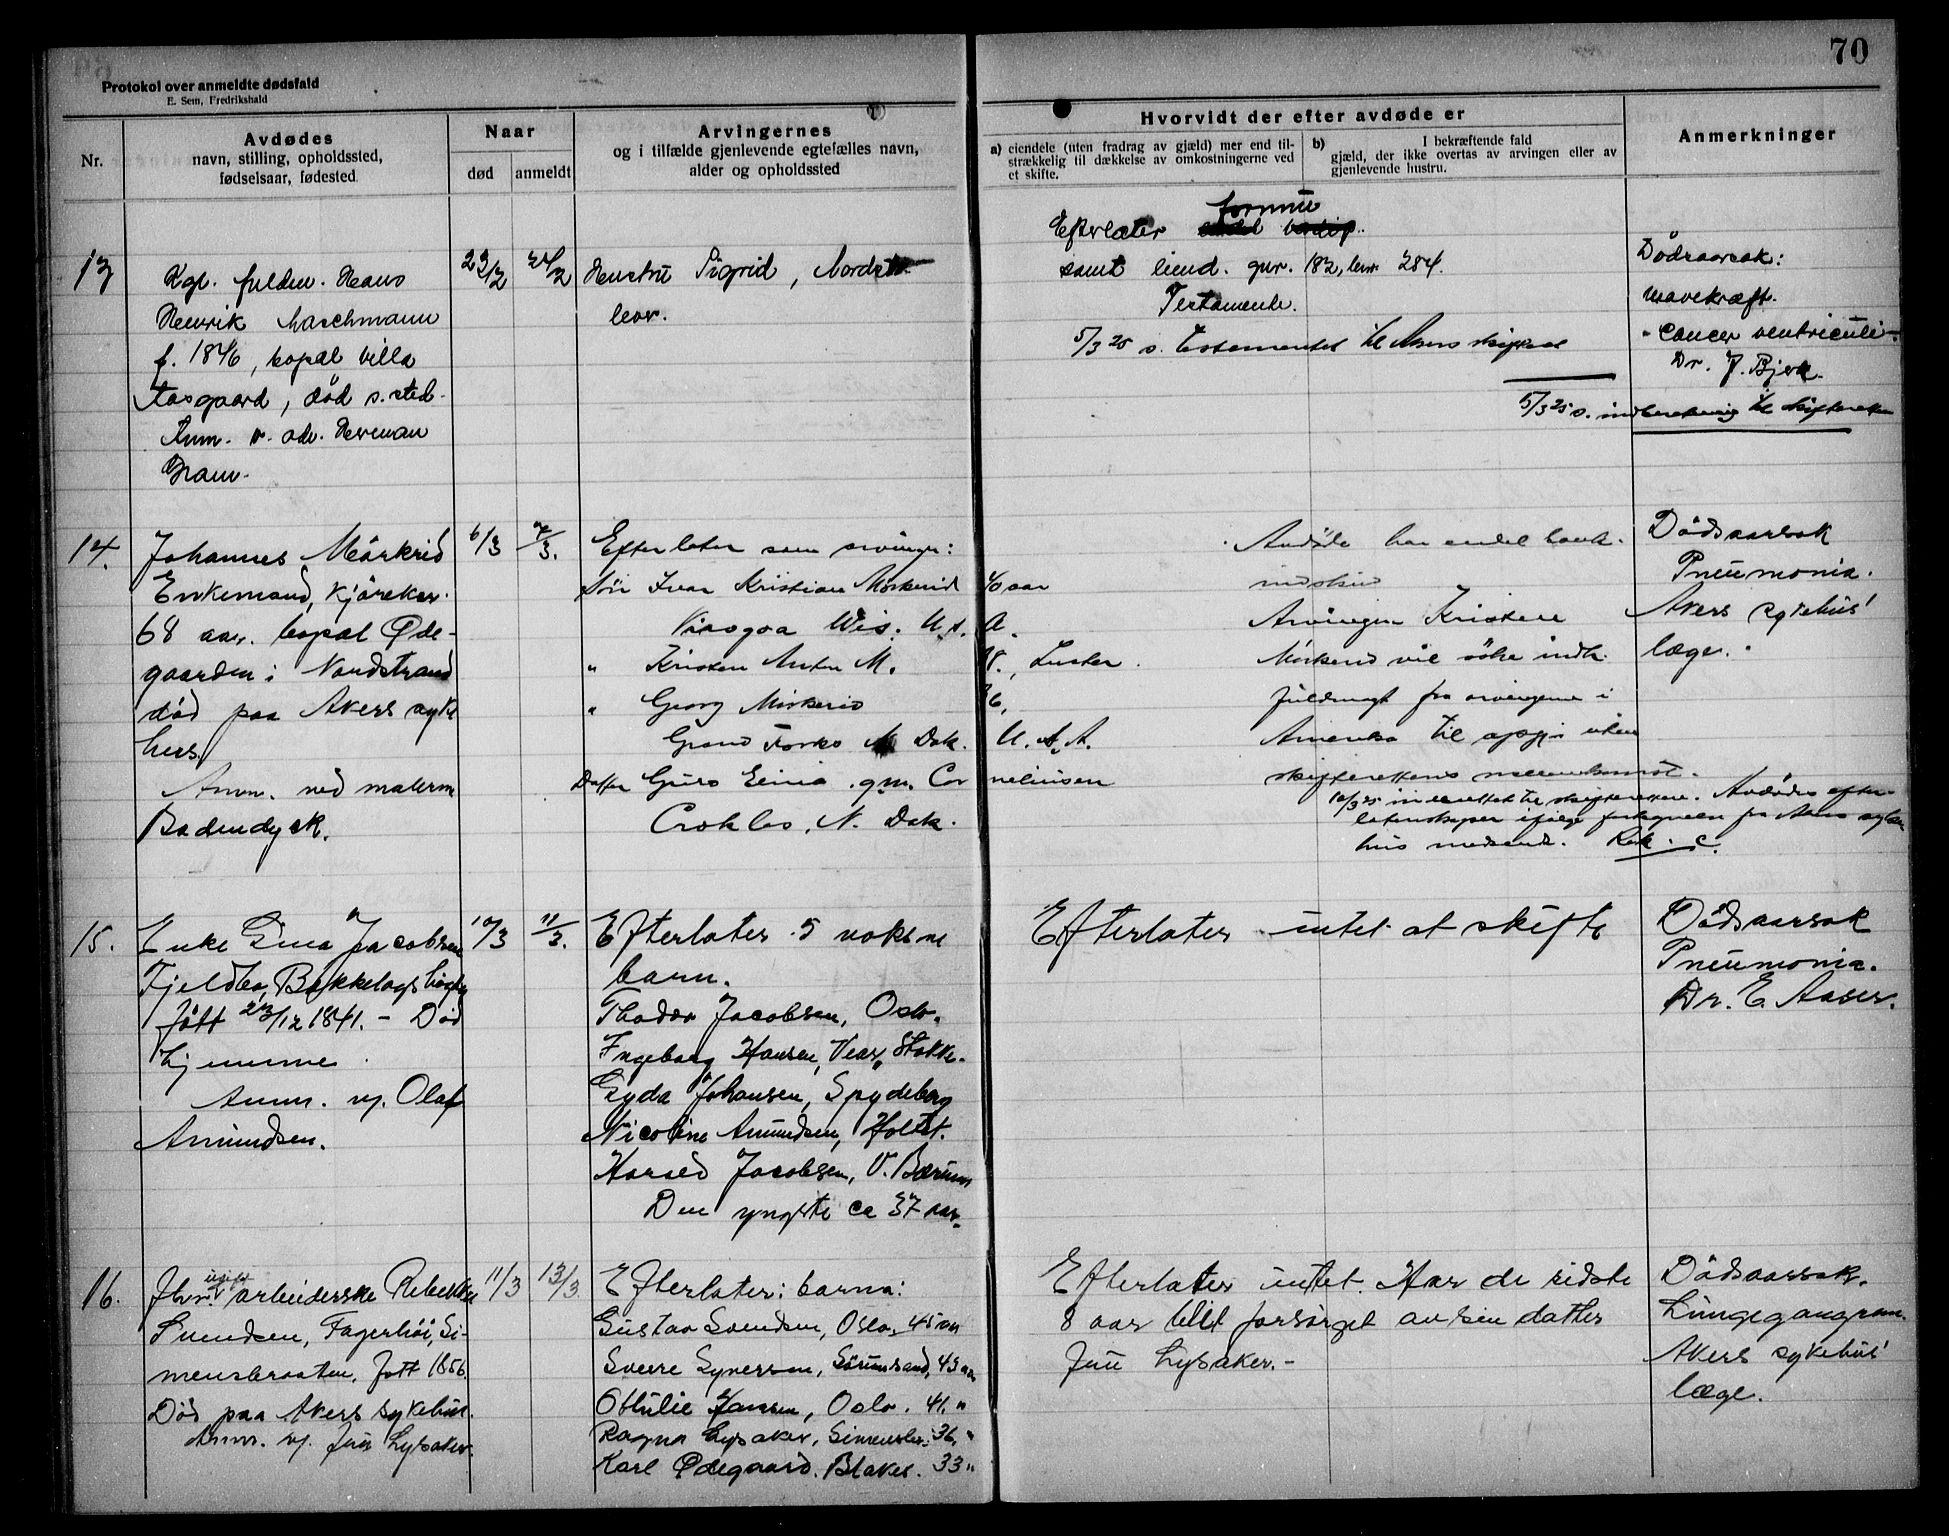 70
Protokol over anmeldte dødsfald
E. Sem, Fredrikshald
Nr.
Avdødes
navn, stilling, opholdssted,
fødselsaar, fødested
Naar
død
anmeldt
Arvingernes
og i tilfælde gjenlevende egtefælles navn,
alder og opholdssted
Hvorvidt der efter avdøde er
a) eiendele (uten fradrag av gjæld) mer end til-
strækkelig til dækkelse av omkostningerne ved
et skifte.
b) I bekræftende fald
gjæld, der ikke overtas av arvingen eller av
gjenlevende hustru.
Anmerkninger
13
Kgl. fuldm. Hans
Henrik Maschmann
f. 1846, bopæl villa
Aasgaard, død s. sted.
Anm. v. adv. Herman
Gram.
23/2
24/2
Hustru Sigrid,
formue
Efterlater
samt eiend. gnr. 182, bnr. 284.
Testamente.
5/3 25 s. testamentet til Akers skifteret
Dødsaarsak:
mavekræft.
"cancer ventriculi"
Dr. J. Bjerk.
5/3 25 s. indberetning til skifteretten
14.
Johannes Mørkrid
Enkemand, kjørekar.
68 aar. bopæl Øde-
gaarden i Nordstrand
død paa Akers syke
hus.
Anm. ved malerm
Badendyck.
6/3
7/3.
Efterlater som arvinger:
Søn Ivar Kristian Mørkrid 40 aar
Wis. U.S.A.
" Kristen Anton M. Luster.
" Georg Mørkrid
Grand Forks N Dak. U.S.A.
Datter Guro Eline gm. Corneliusen
N. Dak.
Avdøde har endel bank-
indskud
Arvingen Kristen
Mørkrid vil søke indh.
fuldmagt fra arvingerne i
Amerika til opgjør uten
skifterettens
10/3 25 indberettet til skifteretten. Avdødes efter-
latenskaper ifølge fortegnelse fra Akers syke-
hus medsendt.
Dødsaarsak
Pneumonia.
Akers sykehus'
læge.
15.
Enke Gina Jacobsen
Fjeldbo, Bækkelagshøgda
født 23/12 1841. - Død
hjemme.
Anm. v. Olaf
Amundsen.
10/3
11/3.
Efterlater 5 voksne
barn.
Thodor Jacobsen, Oslo.
Ingeborg Hansen, Vear, Stokke.
Gyda Johansen, Spydeberg
Nicoline Amundsen, Holtet.
Harald Jacobsen, V. Bærum
Den yngste ca 37 aar.
Efterlater intet at skifte
Dødsaarsak
Pneumonia.
Dr. E. Aaser.
16.
ugift
Fhv. arbeiderske Rebekka
Svendsen, Fagerhøi, Si-
mensbraaten, født 1856.
Død paa Akers sykehus.
Anm. v. fru Lysaker.
11/3
13/3
Efterlater: barna:
Gustav Svendsen, Oslo, 45 aar
Sverre Syversen, Sørumsand, 43 aar
Othilie Hansen, Oslo. 41. "
Ragna Lysaker, Simensbr. 36. "
Karl Ødegaard. Blaker. 33 "
Efterlater intet. Har de sidste
8 aar blit forsørget av sin datter
Fru Lysaker. -
Dødsaarsak.
Lungegangræn.
Akers sykehus'
læge.